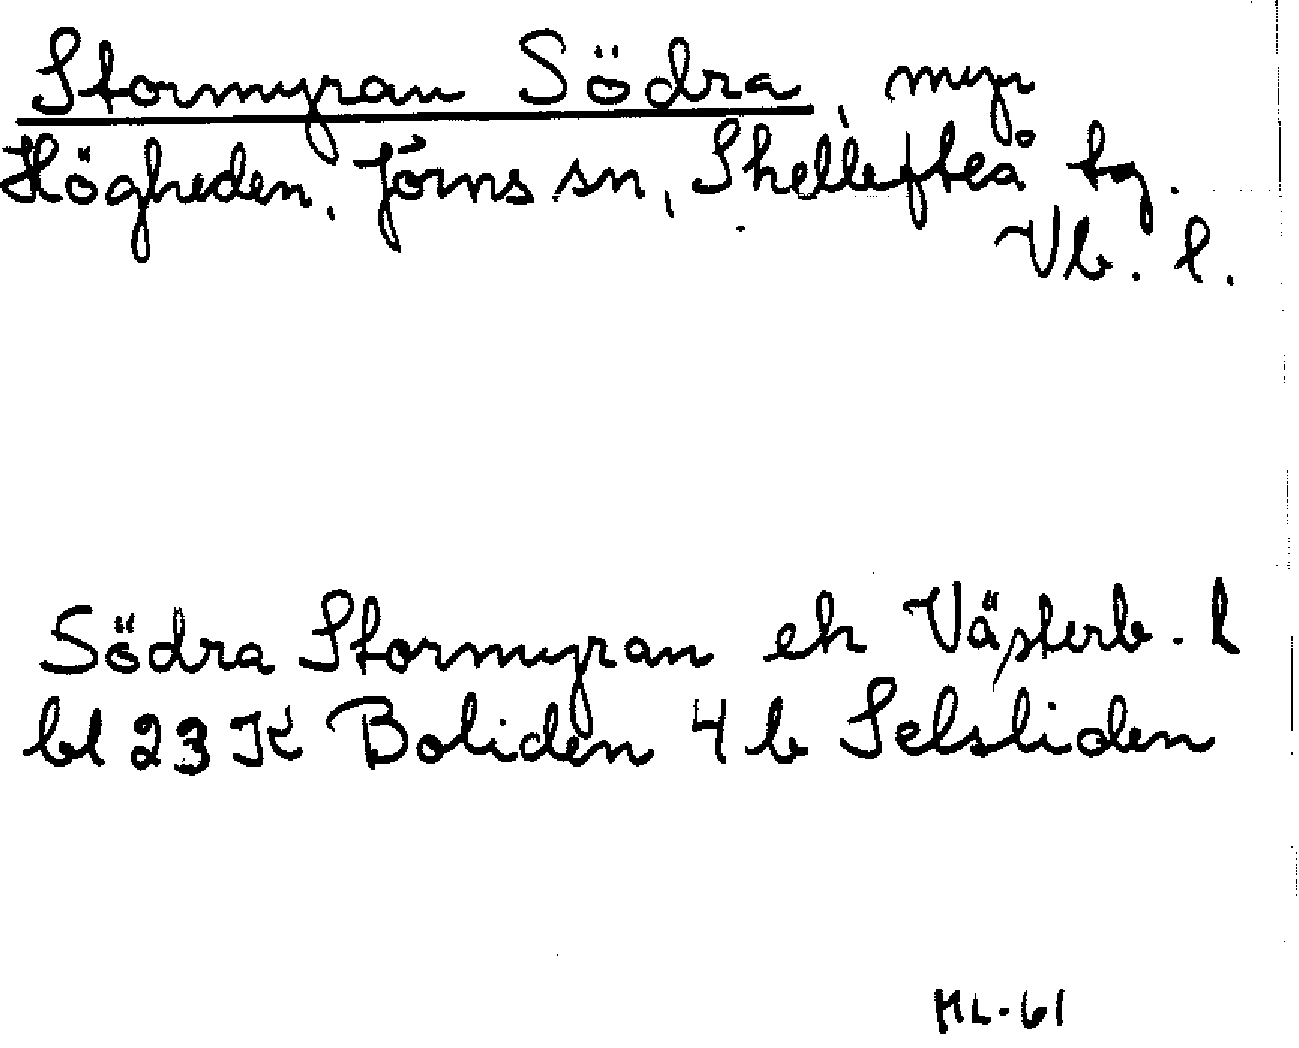 Stormyran Södra, myr
Högheden, Jörns sn, Skellefteå tg.
Vb. l.
Södra Stormyran ek Västerb. l
bl 23 K Boliden 4 b Selsliden
ML-61